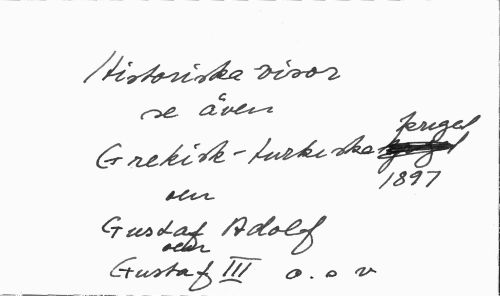 Historiska visor
se även
Grekisk-turkiska kriget
1897
och
Gustaf Adolf
och
Gustaf III o.s.v